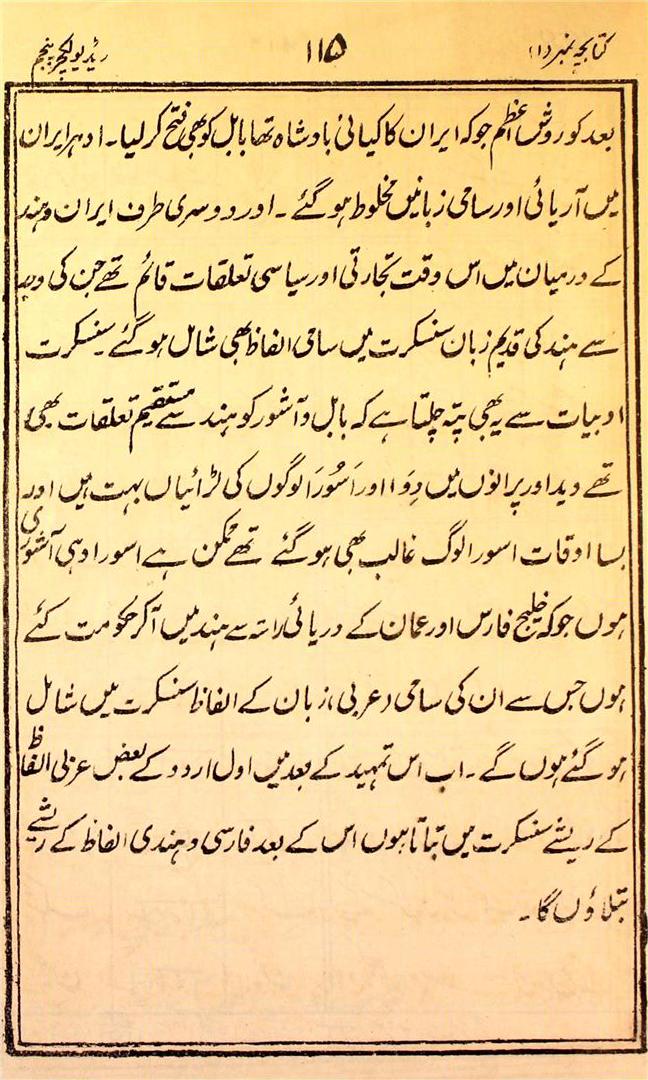 کتابچہ نمبر (۱) ۱۱۵ ریڈیو لکچر پنجم
بعد کوروش اعظم جو کہ ایران کا کیانی بادشاہ تھا بابل کو بھی فتح کر لیا۔ ادہر ایران
میں آریائی اور سامی زبانیں مخلوط ہو گئے۔ اور دوسری طرف ایران و ہند
کے درمیان میں اس وقت تجارتی اور سیاسی تعلقات قائم تھے جن کی وجہ
سے ہند کی قدیم زبان سنسکرت میں سامی الفاظ بھی شامل ہو گئے۔ سنسکرت
ادبیات سے یہ بھی پتہ چلتا ہے کہ بابل و آشور کو ہند سے مستقیم تعلقات بھی
تھے وید اور پرانوں میں دِوَا اور اَسُورَا لوگوں کی لڑائیاں بہت ہیں اور
بسا اوقات اسورا لوگ غالب بھی ہو گئے تھے ممکن ہے اسورا وہی آشوری
ہوں جو کہ خلیج فارس اور عمان کے دریائی راستہ سے ہند میں آ کر حکومت کئے
ہوں جس سے ان کی سامی (عربی) زبان کے الفاظ سنسکرت میں شامل
ہو گئے ہوں گے۔ اب اس تمہید کے بعد میں اول اردو کے بعض عربی الفاظ
کے ریشے سنسکرت میں بتاتا ہوں اس کے بعد فارسی و ہندی الفاظ کے ریشے
بتلاؤں گا۔